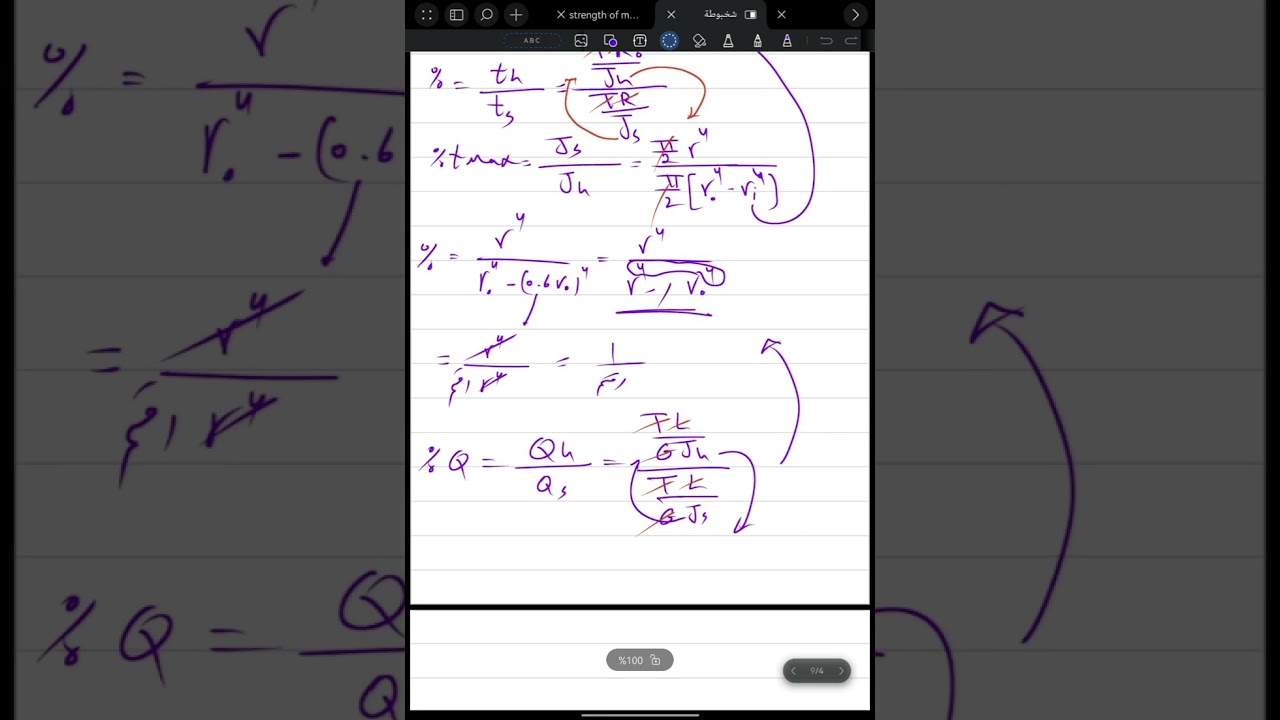 strength of m...
شخبوطة
ABC
% = th / ts = (TR₀ / Jh) / (TR / Js)
% t max = Js / Jh = (π/2 r⁴) / (π/2 [r₀⁴ - ri⁴])
% = r⁴ / (r₀⁴ - (0.6 r₀)⁴) = r⁴ / (r⁴ - r₀⁴)
= r⁴ / r⁴ = 1 /
% Q = Qh / Qs = (TL / GJh) / (TL / GJs)
%100
9/4